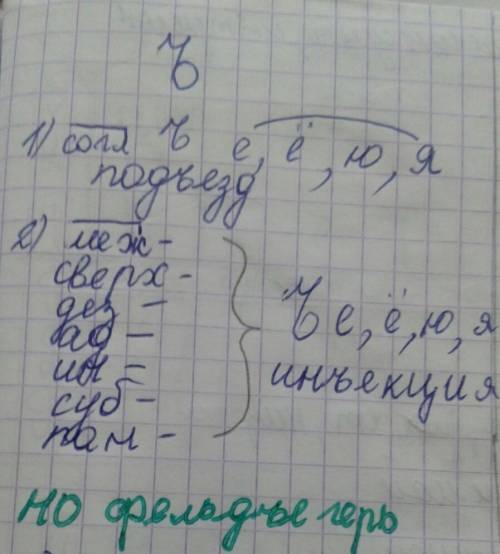 Ъ
1) согл ъ е, ё, ю, я
подъезд
2) меж-
сверх-
дез-
ад-
ин-
суб-
пан-
Ъ е, ё, ю, я
инъекция
НО фельдъегерь